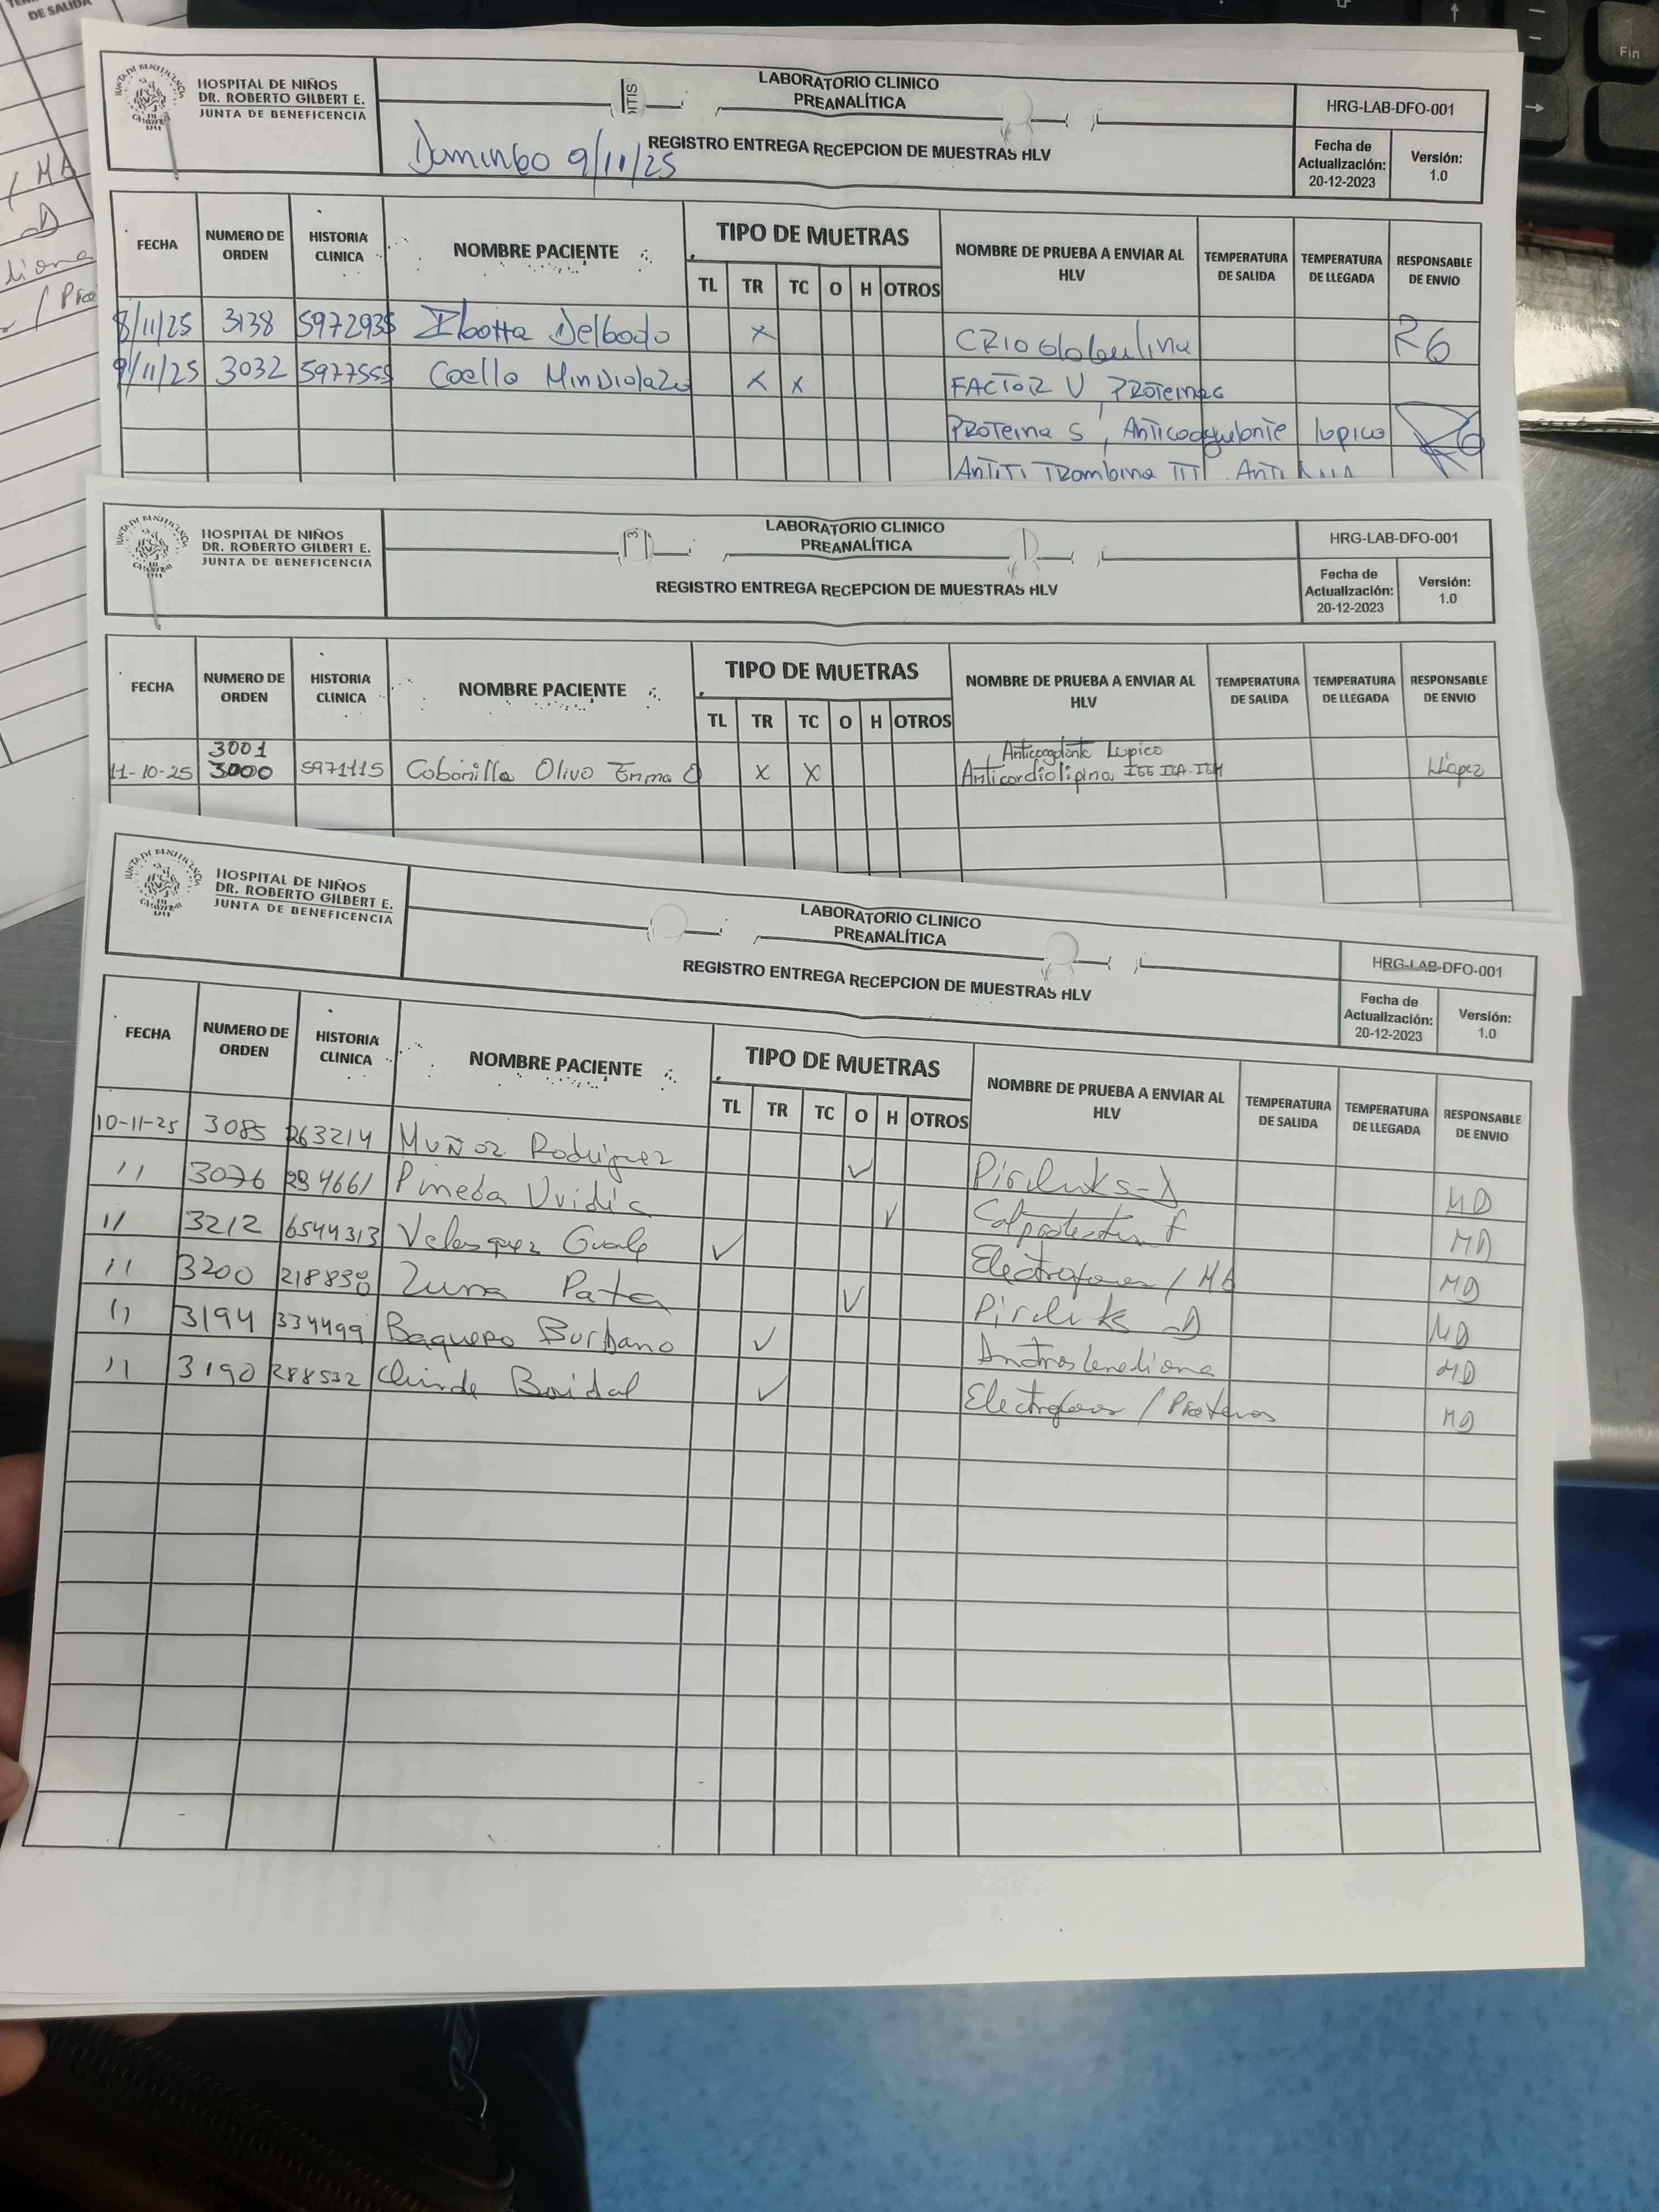 DE SALIDA
Fin
HOSPITAL DE NIÑOS
DR. ROBERTO GILBERT E.
JUNTA DE BENEFICENCIA
LABORATORIO CLINICO
PREANALÍTICA
REGISTRO ENTREGA RECEPCION DE MUESTRAS HLV
Domingo 9/11/25
HRG-LAB-DFO-001
Fecha de Actualización: 20-12-2023
Versión: 1.0
FECHA NUMERO DE ORDEN HISTORIA CLINICA NOMBRE PACIENTE TIPO DE MUETRAS NOMBRE DE PRUEBA A ENVIAR AL HLV TEMPERATURA DE SALIDA TEMPERATURA DE LLEGADA RESPONSABLE DE ENVIO
TL TR TC O H OTROS
8/11/25 3138 5972935 Delgado x CRIOGlobulina RG
9/11/25 3032 Coello x x FACTOR V, PROTEINAS
PROTEINA S, Anticoagulante lupico RG
ANTITI TROMBINA III
HOSPITAL DE NIÑOS
DR. ROBERTO GILBERT E.
JUNTA DE BENEFICENCIA
LABORATORIO CLINICO
PREANALÍTICA
REGISTRO ENTREGA RECEPCION DE MUESTRAS HLV
HRG-LAB-DFO-001
Fecha de Actualización: 20-12-2023
Versión: 1.0
FECHA NUMERO DE ORDEN HISTORIA CLINICA NOMBRE PACIENTE TIPO DE MUETRAS NOMBRE DE PRUEBA A ENVIAR AL HLV TEMPERATURA DE SALIDA TEMPERATURA DE LLEGADA RESPONSABLE DE ENVIO
TL TR TC O H OTROS
3001 Lupico
11-10-25 3000 5971115 Olivo Emma x x Anticardiolipina
HOSPITAL DE NIÑOS
DR. ROBERTO GILBERT E.
JUNTA DE BENEFICENCIA
LABORATORIO CLINICO
PREANALÍTICA
REGISTRO ENTREGA RECEPCION DE MUESTRAS HLV
HRG-LAB-DFO-001
Fecha de Actualización: 20-12-2023
Versión: 1.0
FECHA NUMERO DE ORDEN HISTORIA CLINICA NOMBRE PACIENTE TIPO DE MUETRAS NOMBRE DE PRUEBA A ENVIAR AL HLV TEMPERATURA DE SALIDA TEMPERATURA DE LLEGADA RESPONSABLE DE ENVIO
TL TR TC O H OTROS
10-11-25 3085 263214 Muñoz Rodriguez ✓ Piriluks-D MD
11 3076 Pineda ✓ MD
11 3212 6544313 Velasquez Guale ✓ MD
11 3200 ✓ Piriluks D MD
11 3194 334499 Baquero Burbano ✓ Androstenediona MD
11 3190 288532 ✓ MD